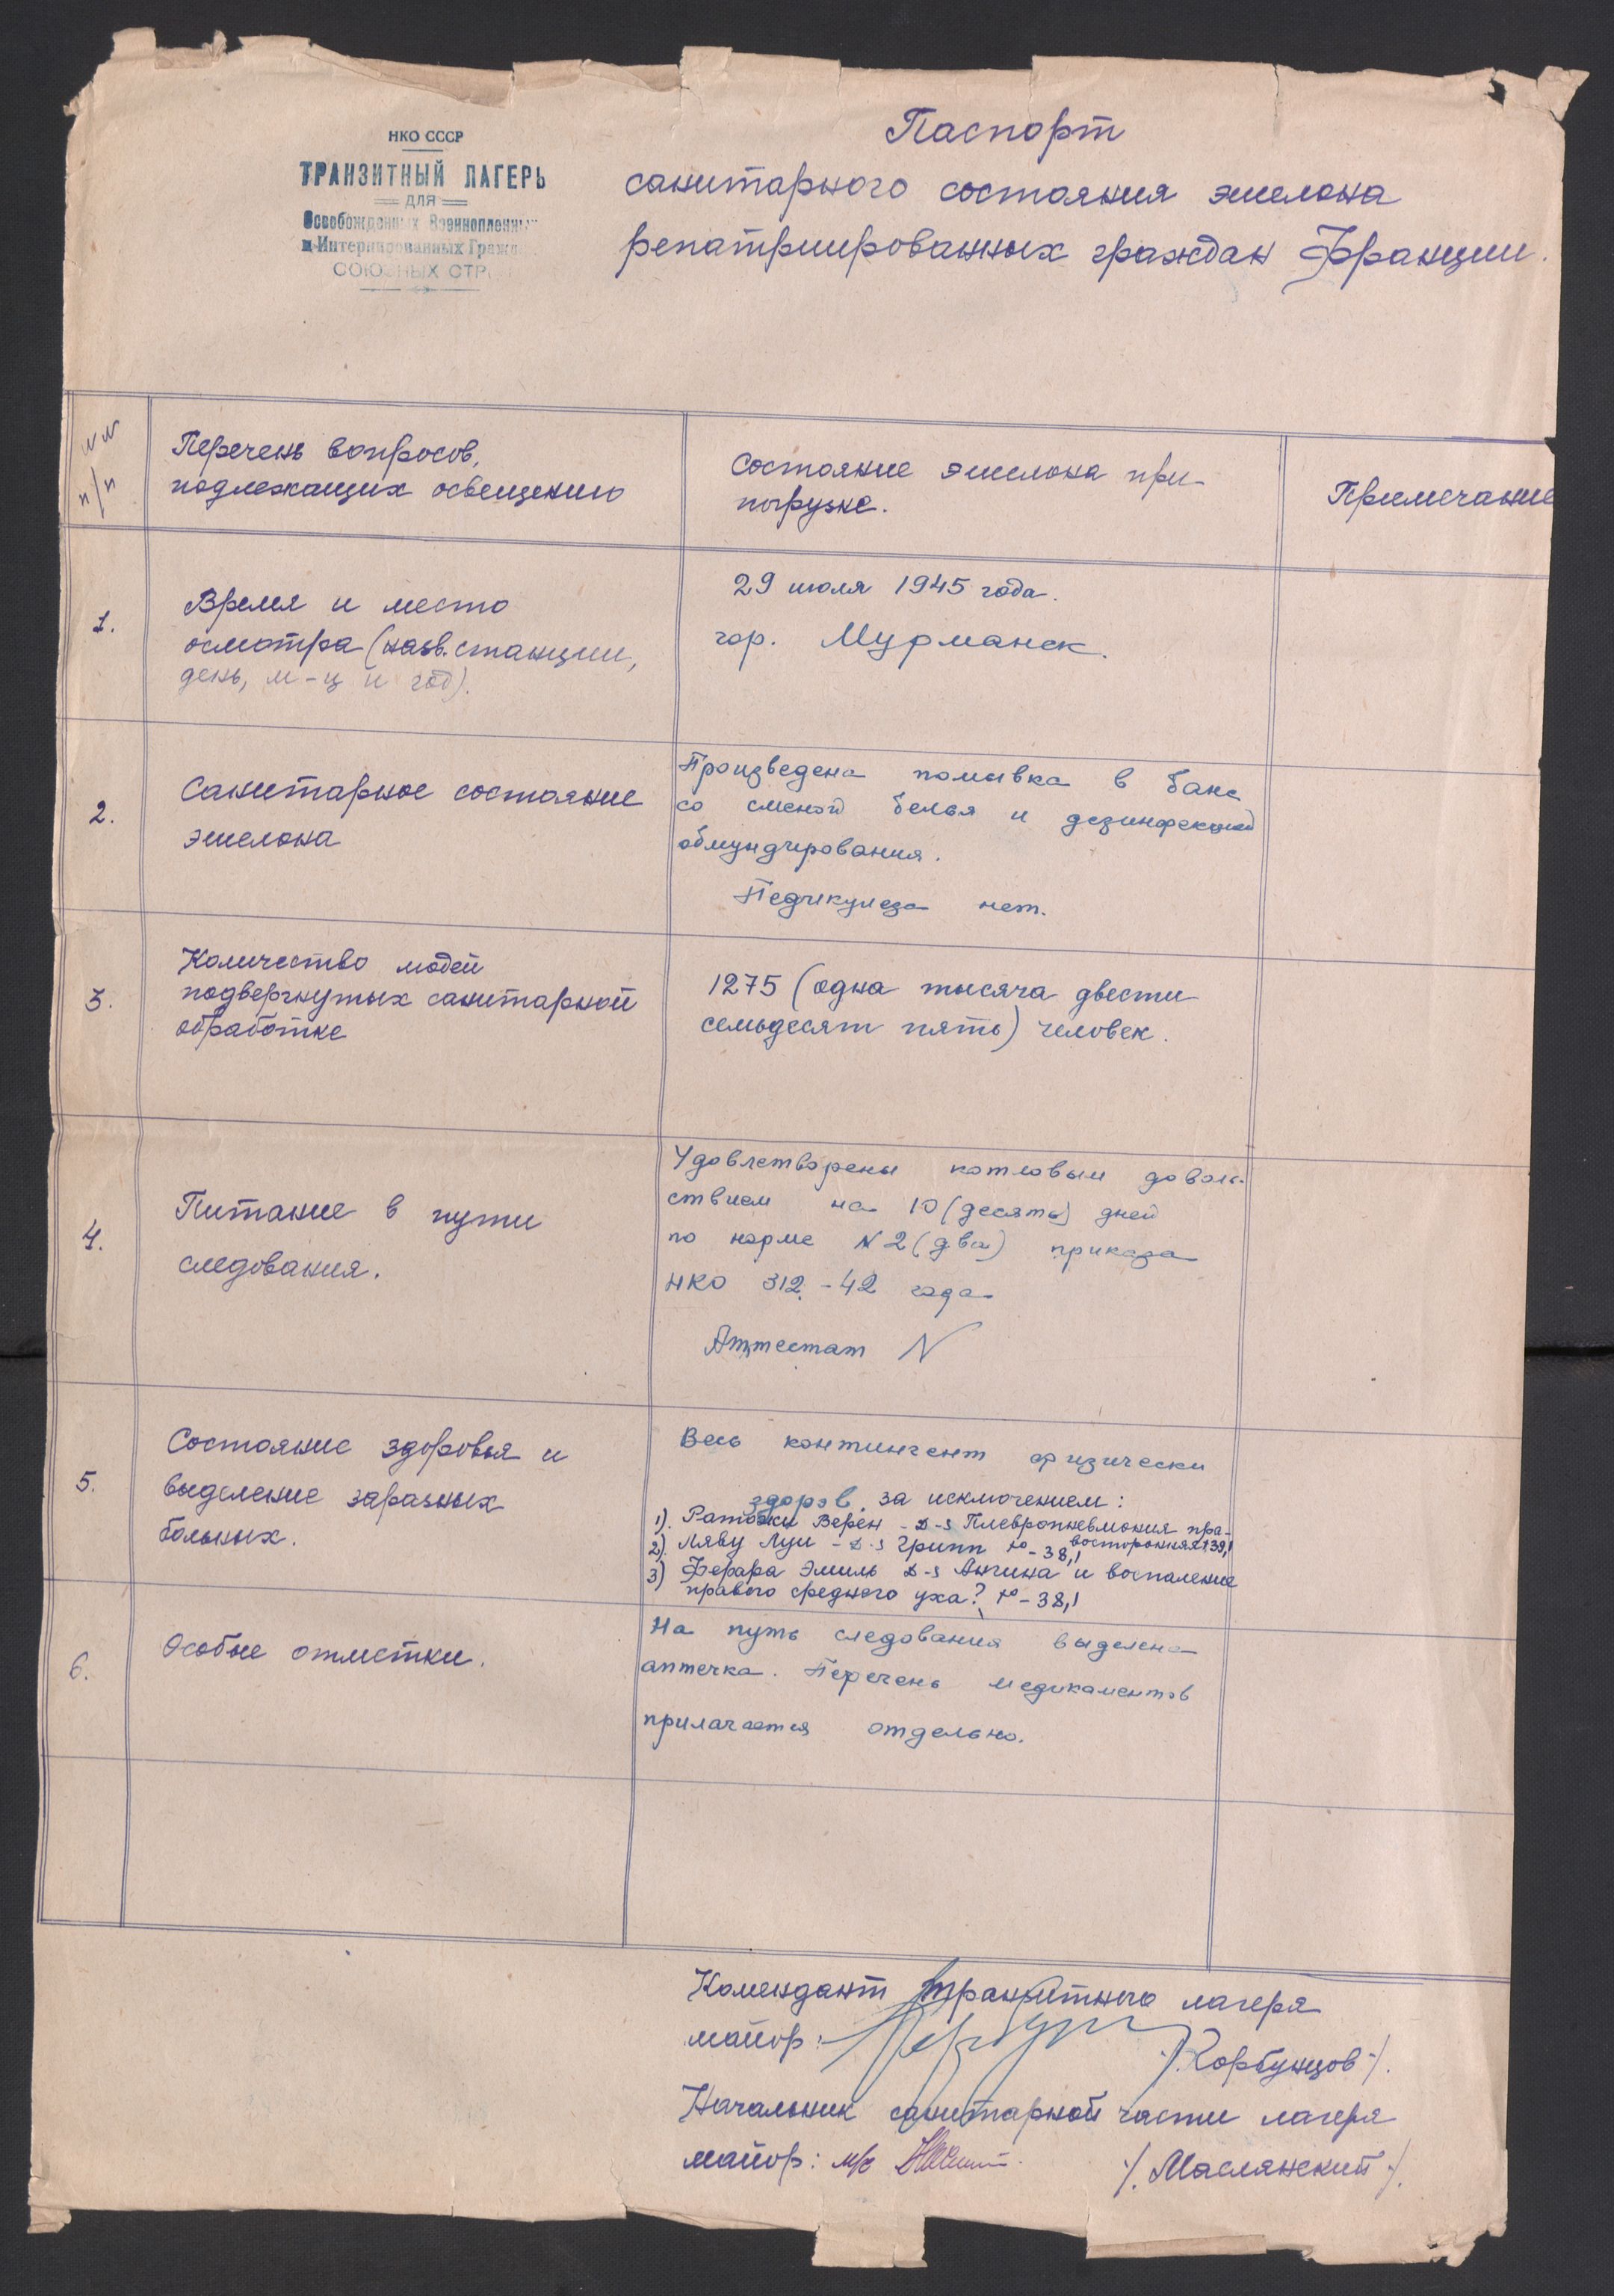 НКО СССР
ТРАНЗИТНЫЙ ЛАГЕРЬ
ДЛЯ
Освобожденных Военнопленны
и Интернированных Гражд
СОЮЗНЫХ СТР
Паспорт
санитарного состояния эшелона
репатриированных граждан Франции.
NN
п/п
Перечень вопросов,
подлежащих освещению
Состояние эшелона при
погрузке.
Примечание
1.
Время и место
осмотра (назв. станции,
день, м-ц и год).
29 июля 1945 года.
гор. Мурманск.
2.
Санитарное состояние
эшелона
Произведена помывка в бане
со сменой белья и дезинфекцией
обмундирования.
Педикулеза нет.
3.
Количество людей
подвергнутых санитарной
обработке
1275 (одна тысяча двести
семьдесят пять) человек.
4.
Питание в пути
следования.
Удовлетворены котловым доволь-
ствием на 10 (десять) дней
по норме N2 (два) приказа
НКО 312 -42 года
Аттестат N
5.
Состояние здоровья и
выделение заразных
больных.
Весь контингент физически
здоров, за исключением:
1). Верен - D-s Плевропневмония пра-
восторонняя t 39,1
2). Ляву Луи - D-s Грипп t° - 38,1
3) Ферара Эмиль D-s Ангина и воспаление
правого среднего уха? t° - 38,1
6.
Особые отметки.
На путь следования выделена
аптечка. Перечень медикаментов
прилагается отдельно.
Комендант транзитного лагеря
майор: /.Корбунцов./.
Начальник санитарной части лагеря
майор: м/с /.Маслянский./.